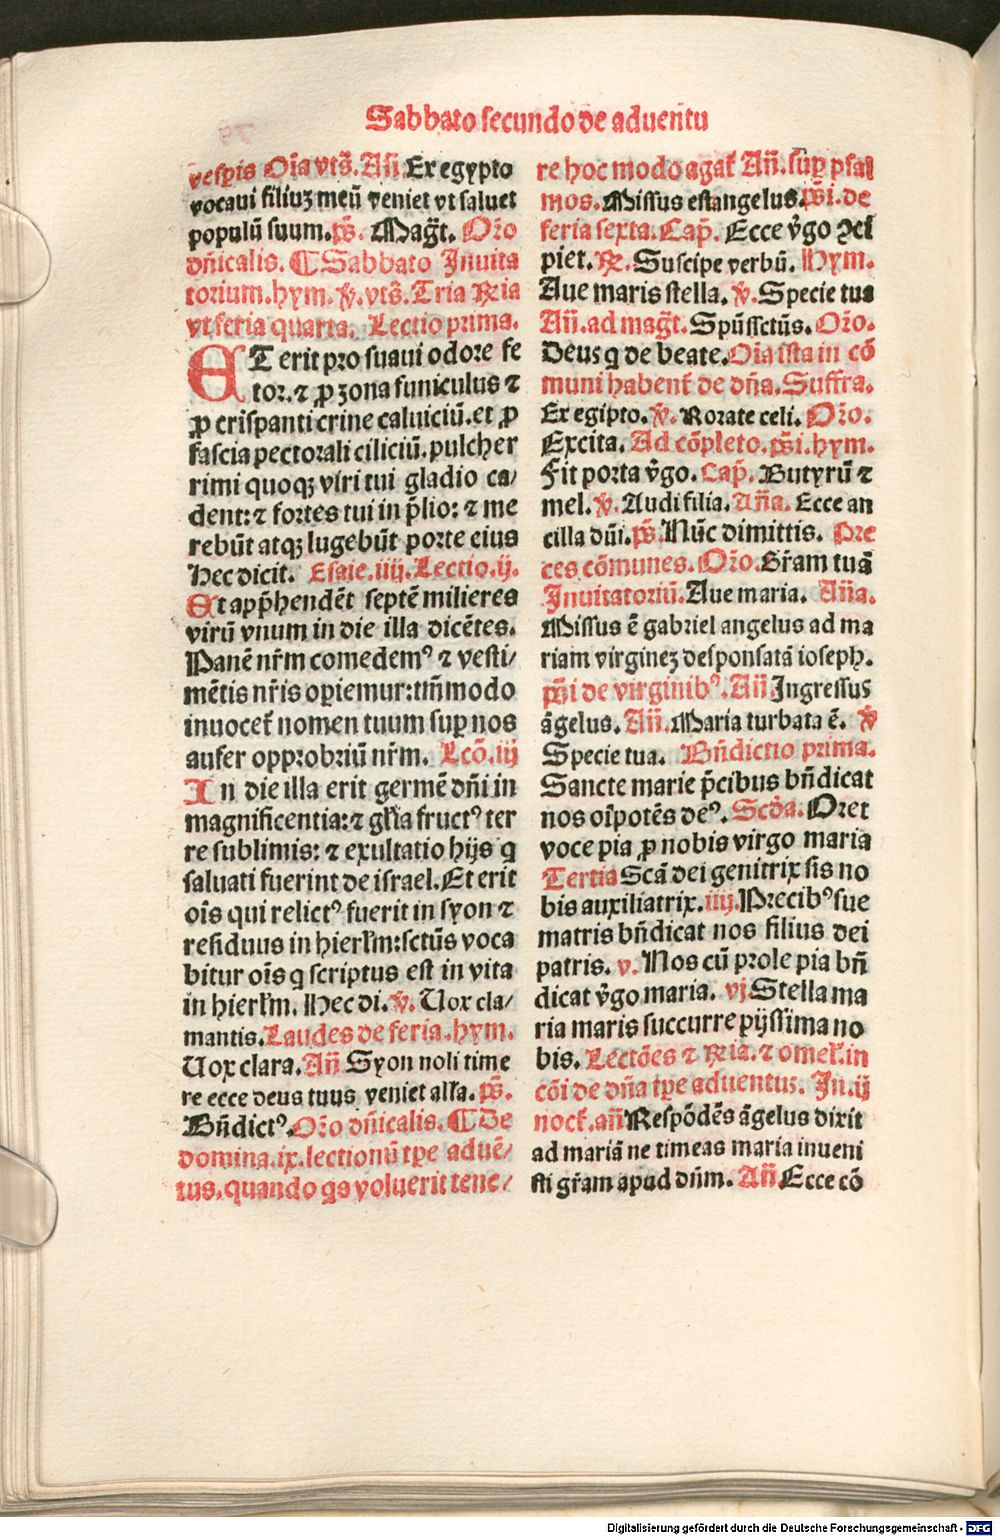 Sabbato secundo de aduentu
vesꝑis Oīa vts̄. Añ. Ex egypto
vocaui filiuꝫ meū veniet vt saluet
populū suum. ps̄. Mag̃t. Orõ
dñicalis. ¶ Sabbato Inuita
torium. hym. ꝟ. vts̄. Tria Rñia
vt feria quarta. Lectio prima.
ET erit pro suaui odore fe
tor. ⁊ ꝓ zona funiculus ⁊
ꝓ crispanti crine caluiciū. et ꝓ
fascia pectorali ciliciū. pulcher
rimi quoqꝫ viri tui gladio ca/
dent: ⁊ fortes tui in p̄lio: ⁊ me
rebūt atqꝫ lugebūt porte eius
Hec dicit. Esaie. iiij. Lectio. ij.
Et app̄hendēt septē milieres
virū vnum in die illa dicētes.
Panē nr̄m comedemꝰ ⁊ vesti/
mētis nr̄is opiemur: tm̄modo
inuocet̃ nomen tuum suꝑ nos
aufer opprobriū nr̄m. Lcõ. iij
In die illa erit germē dñi in
magnificentia: ⁊ gl̃ia fructꝰ ter
re sublimis: ⁊ exultatio hijs q
saluati fuerint de israel. Et erit
oīs qui relictꝰ fuerit in syon ⁊
residuus in hierl̃m: sctūs voca
bitur oīs q scriptus est in vita
in hierl̃m. Hec di. ꝟ. Uox cla/
mantis. Laudes de feria. hym.
Uox clara. Añ Syon noli time
re ecce deus tuus veniet all̃a. ps̄.
Bñdictꝰ. Orõ dñicalis. ¶ De
domina. ix. lectionū tꝑe aduē/
tus, quando qs voluerit tene/
re hoc modo agat̃ Añ. suꝑ psal
mos. Missus est angelus. ps̄i. de
feria sexta. Cap̄. Ecce ꝟgo ↄci
piet. ℞. Suscipe verbū. Hym.
Aue maris stella. ꝟ. Specie tua
Añ. ad mag̃t. Spūssctūs. Orõ.
Deus q de beate. Oīa ista in cō
muni habent̃ de dña. Suffra.
Ex egipto. ꝟ. Rorate celi. Orõ.
Excita. Ad cōpleto. ps̄i. hym.
Fit porta ꝟgo. Cap̄. Butyrū ⁊
mel. ꝟ. Audi filia. Aña. Ecce an
cilla dñi. ps̄. Nūc dimittis. Pre
ces cōmunes. Orõ. Gr̃am tuā
Inuitatoriū. Aue maria. Aña.
Missus ē gabriel angelus ad ma
riam virgineꝫ desponsatā ioseph.
ps̄i de virginibꝰ. Añ Ingressus
āgelus. Añ. Maria turbata ē. ꝟ
Specie tua. Bñdictio prima.
Sancte marie p̄cibus bñdicat
nos oīpotēs deꝰ. Scd̃a. Oret
voce pia ꝓ nobis virgo maria
Tertia Scā dei genitrix sis no
bis auxiliatrix. iiij. Precibꝰ sue
matris bñdicat nos filius dei
patris. v. Nos cū prole pia bñ
dicat ꝟgo maria. vj. Stella ma
ria maris succurre pijssima no
bis. Lectōes ⁊ Rñia. ⁊ omel̃. in
cōi de dña tꝑe aduentus. In. ij
noct̃. añ Respōdēs āgelus dixit
ad mariā ne timeas maria inueni
sti gr̃am apud dñm. Añ Ecce cō
Digitalisierung gefördert durch die Deutsche Forschungsgemeinschaft - DFG